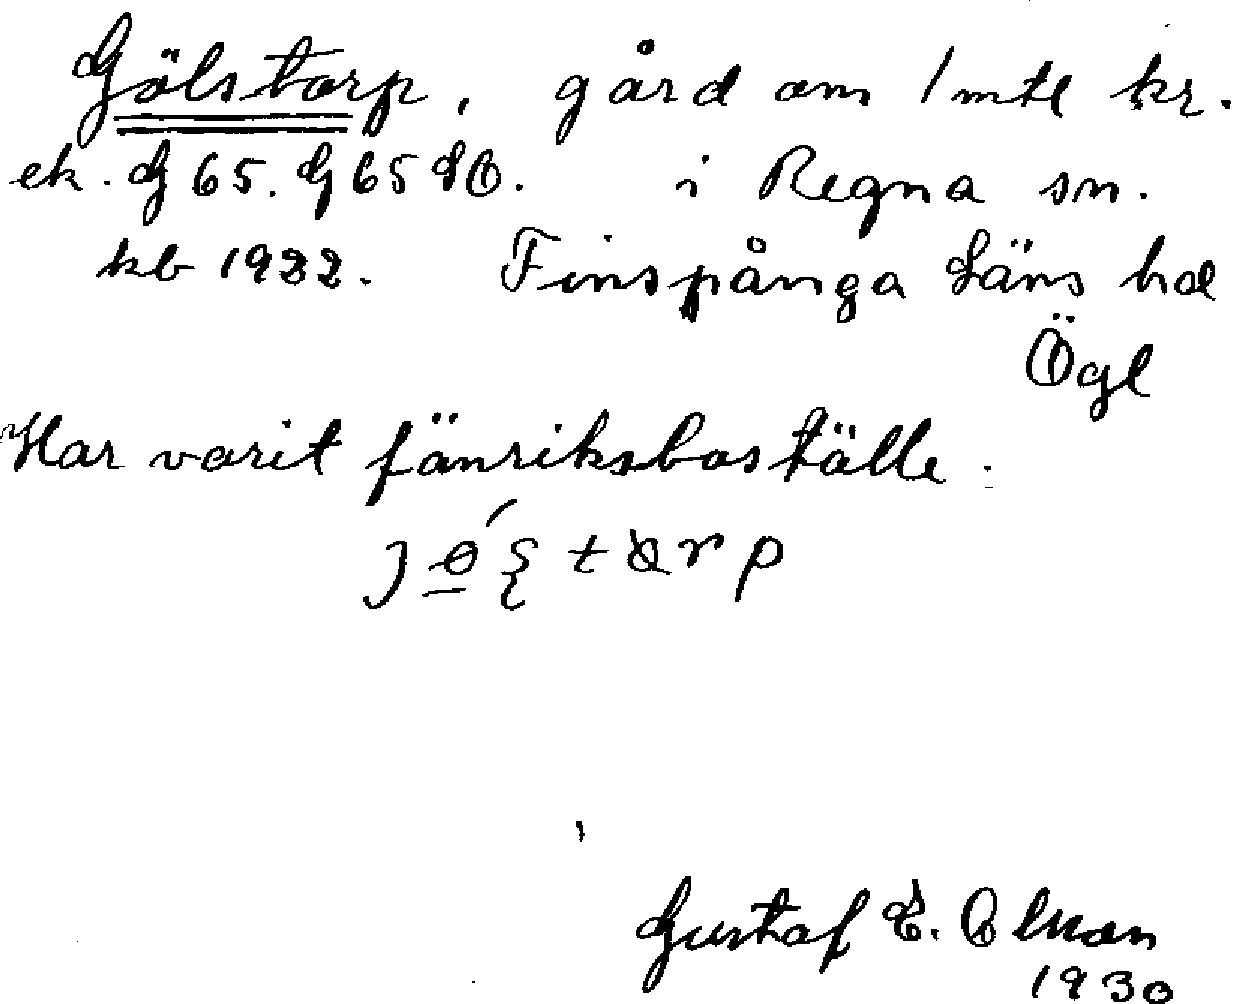 Gölstorp, gård om 1 mtl kr.
ek. G 65. G 65 SO. i Regna sn.
kb 1922. Finspånga Läns hd
Ögl
Har varit fänriksboställe.
Gustaf E.
1930